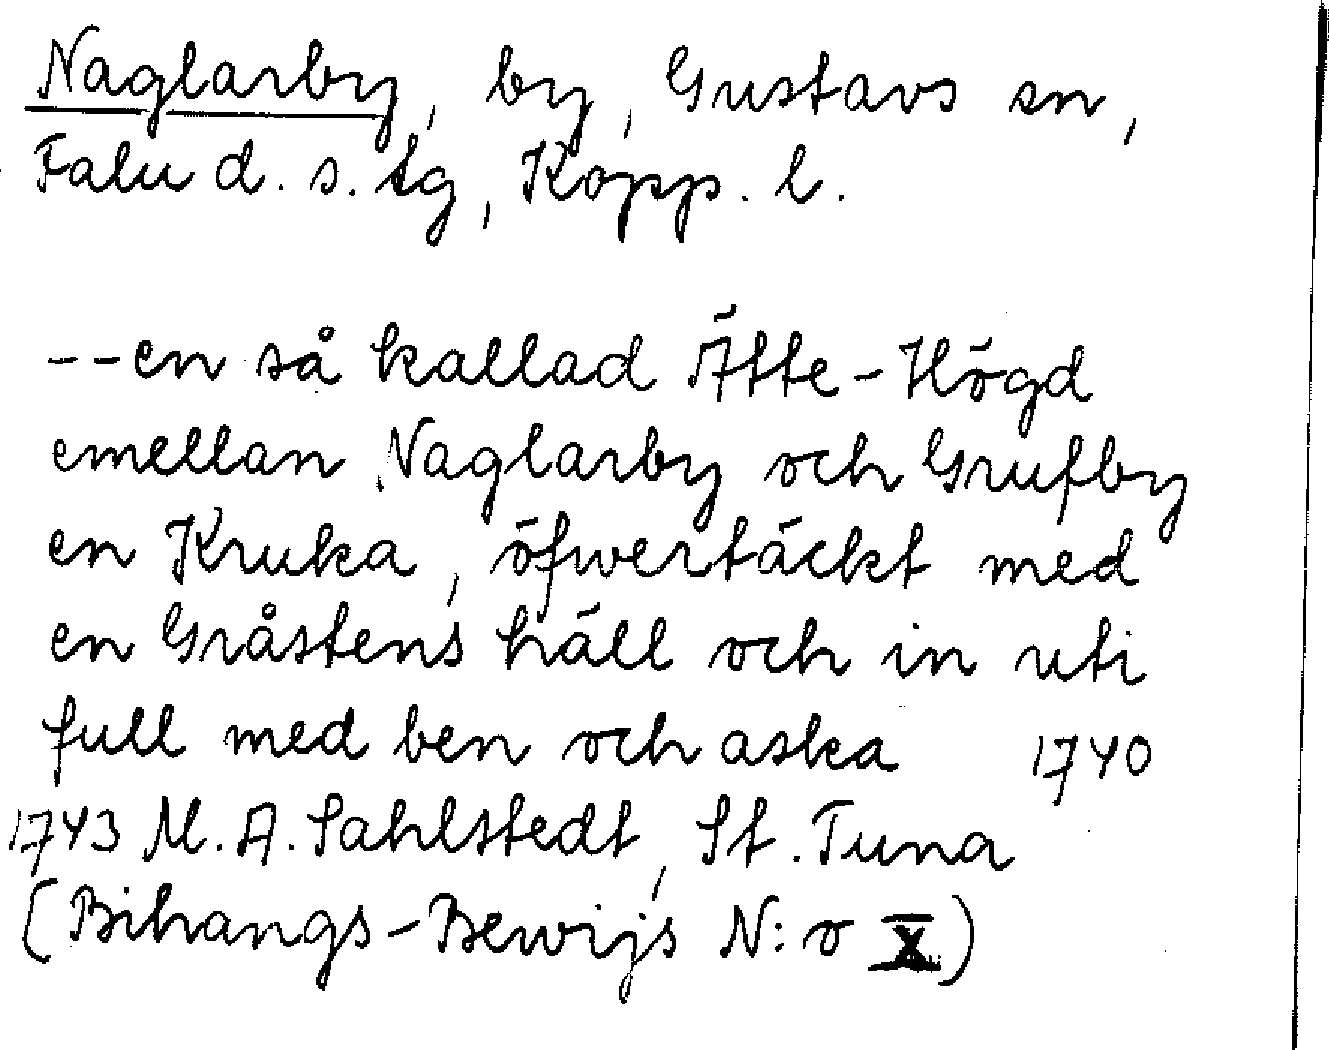 Naglarby, by, Gustavs sn,
Falu d. s. tg, Kopp. l.
--en så kallad Ätte-Högd
emellan Naglarby och Grufby
en Kruka, öfwertäckt med
en Gråstens häll och in uti
full med ben och aska 1740
1743 M. A. Sahlstedt, St. Tuna
(Bihangs-Bewijs N:o X)